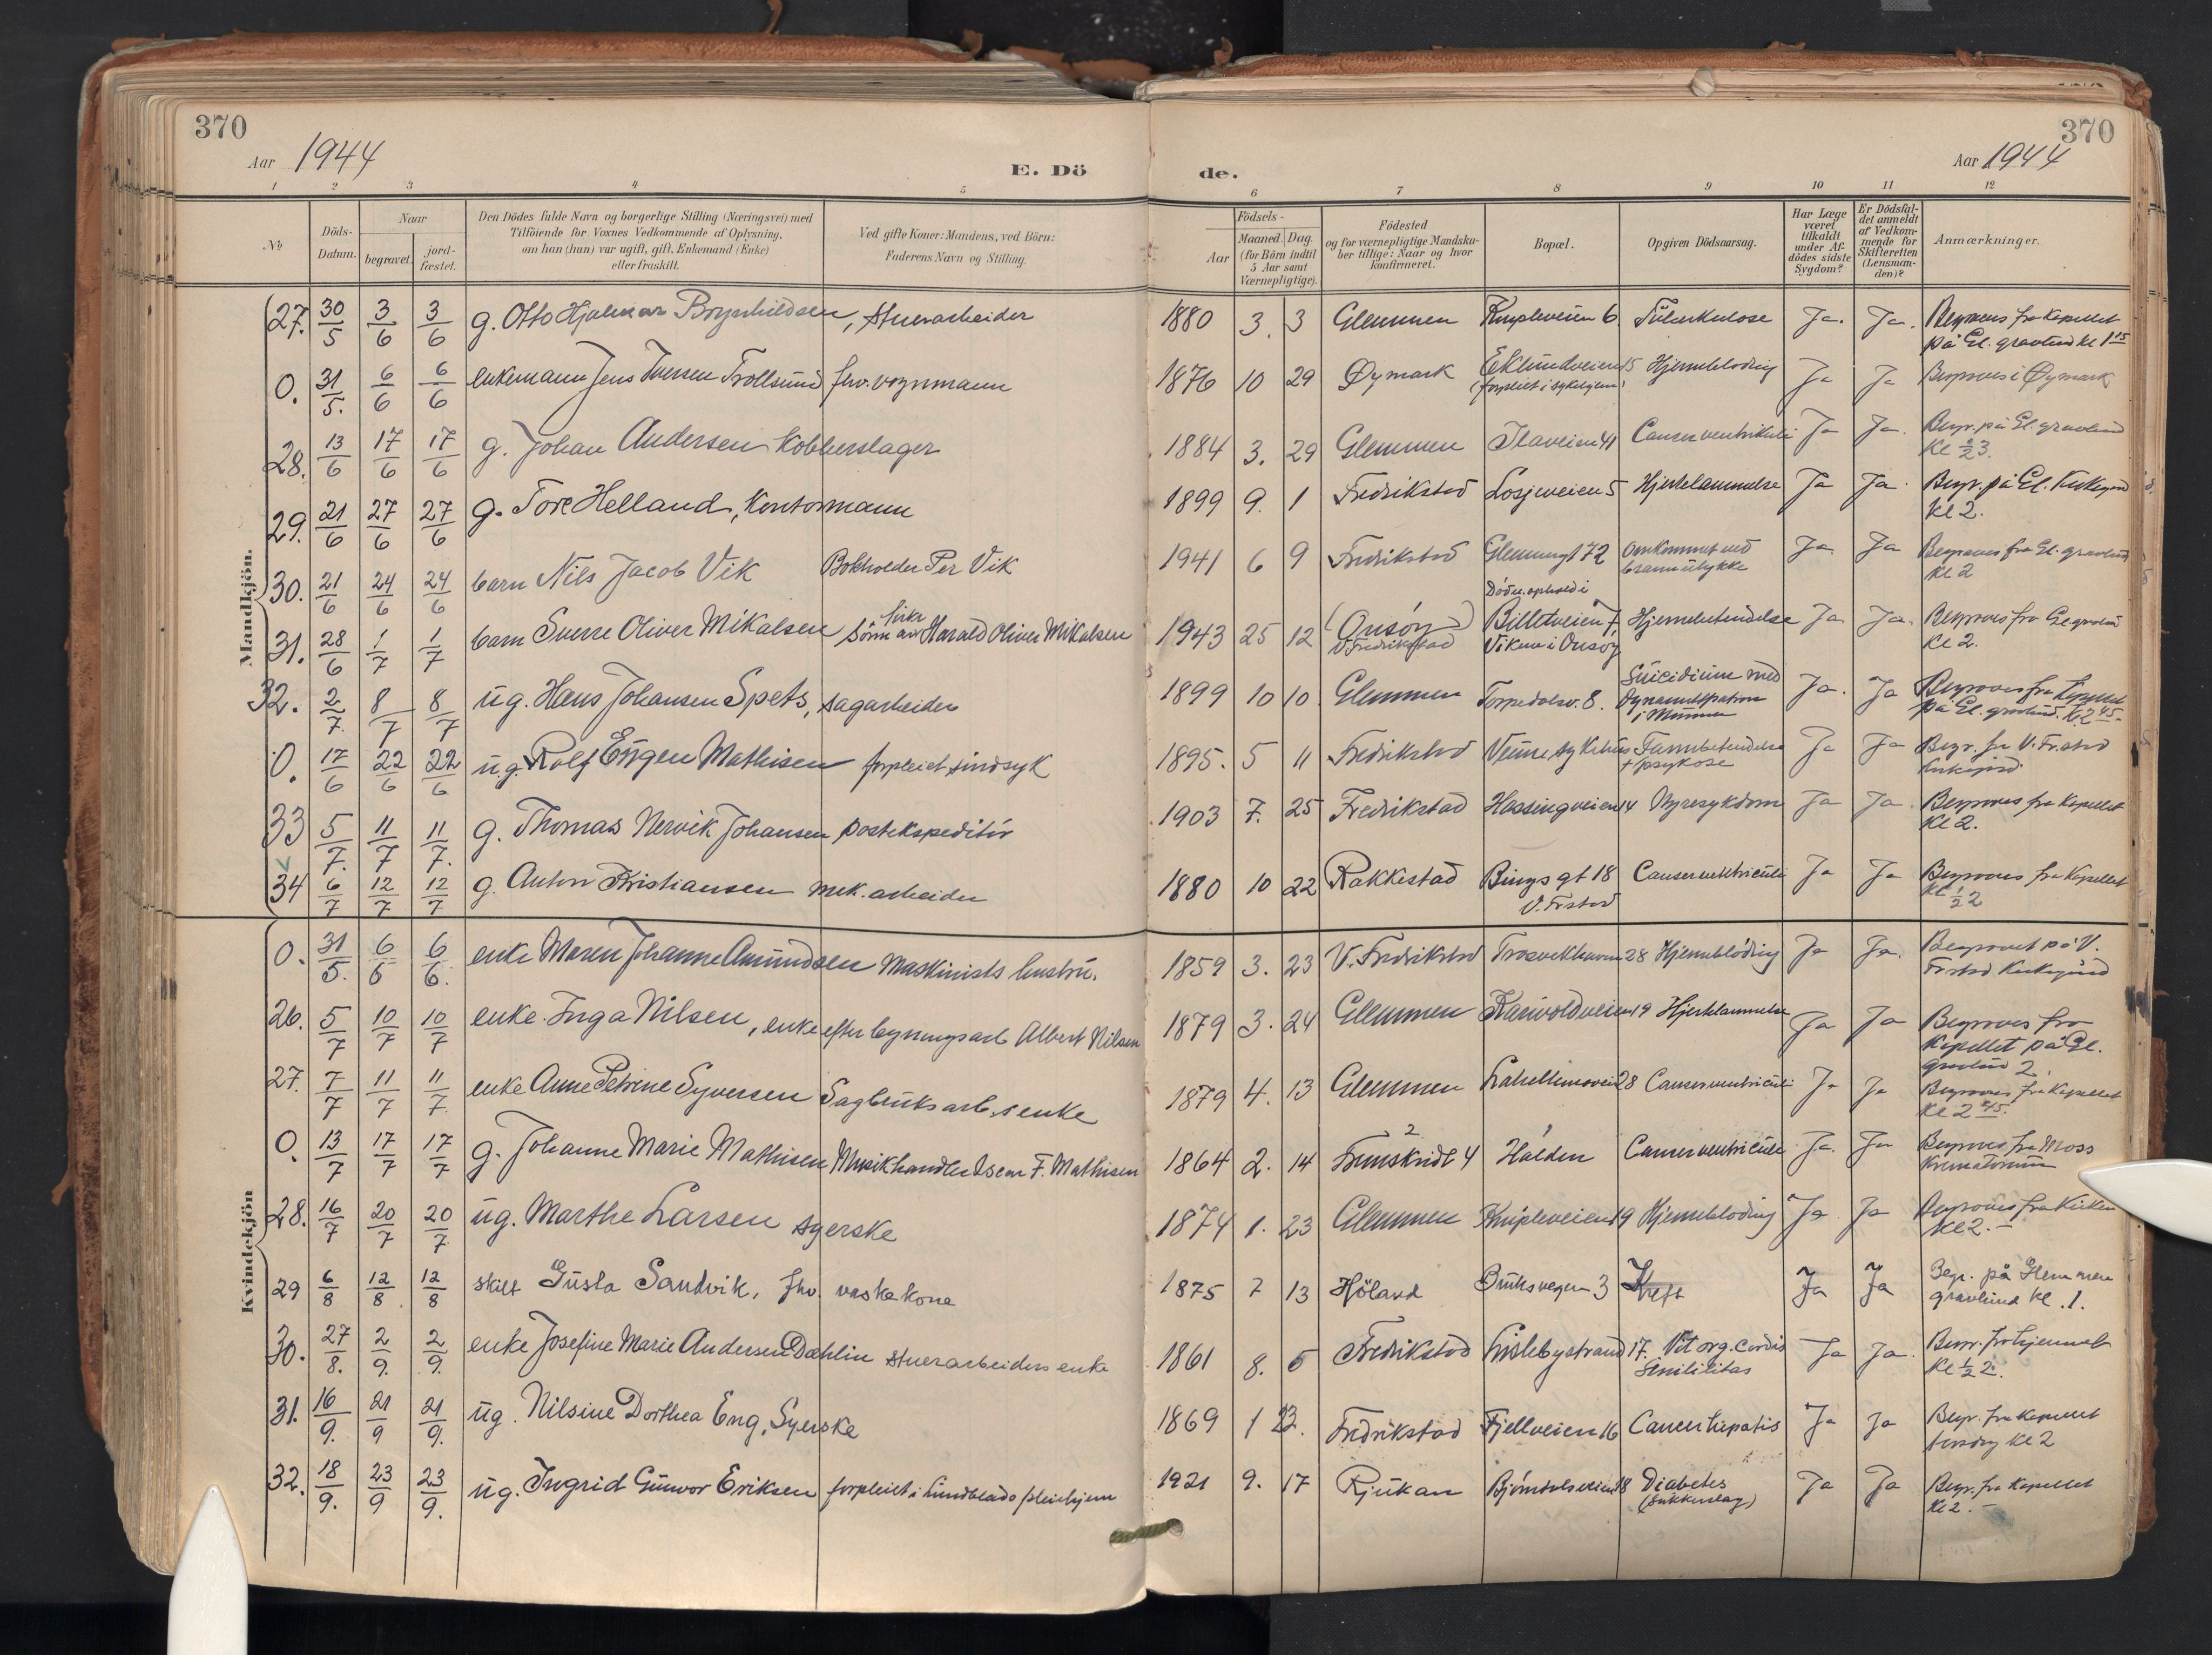 370
Aar 1944
E. Dö
1 2 3 4 5
№ Döds-Datum. Naar begravet. jord-fæstet. Den Dödes fulde Navn og borgerlige Stilling (Næringsvei) med Tilföiende for Voxnes Vedkommende af Oplysning, om han (hun) var ugift, gift, Enkemand (Enke) eller fraskilt. Ved gifte Koner: Mandens, ved Börn: Faderens Navn og Stilling.
Mandkjön.
27. 30/5 3/6 3/6 g. Otto Hjalmar Brynhildsen, stuerarbeider
0. 31/5. 6/6 6/6 enkemann Jens Iversen Trollsund fhv. vognmann
28. 13/6 17/6 17/6 g. Johan Andersen Kobberslager
29. 21/6 27/6 27/6 g. Tore Helland, Kontormann
30. 21/6 24/6 24/6 barn Nils Jacob Vik Bokholder Per Vik
31. 28/6 1/7 1/7 barn Sverre Oliver Mikalsen Sønn av Harald Oliver Mikalsen
32. 2/7. 8/7 8/7 ug. Hans Johansen Spets, sagarbeider
0. 17/6 22/6 22/6 u.g. Rolf Eugen Mathisen forpleiet sindsyk
33 5/7. 11/7 11/7. g. Thomas Nervik Johansen postekspeditør
34 6/7 12/7 12/7 g. Anton Kristiansen mek. arbeider
Kvindekjön
0. 31/5. 6/6 6/6. enke Maren Johanne Amundsen Maskinists hustru.
26. 5/7 10/7 10/7 enke Inga Nilsen, enke efter bygningsarb Albert Nilsen
27. 7/7 11/7 11/7 enke Anne Petrine Syversen Sagbruksarb.s enke
0. 13/7 17/7 17/7 g. Johanne Marie Mathisen Musikhandler Oscar F. Mathisen
28. 16/7 20/7 20/7 ug. Marthe Larsen syerske
29 6/8 12/8 12/8 skilt Gusta Sandvik, fhv. vaskekone
30. 27/8. 2/9. 2/9. enke Josefine Marie Andersen Dahlin stuerarbeiders enke
31. 16/9. 21/9 21/9. ug. Nilsine Dorthea Eng, Syerske
32. 18/9. 23/9 23/9. ug. Ingrid Gunvor Eriksen forpleiet i Lundblads pleiehjem
370
Aar 1944
de.
6 7 8 9 10 11 12
Födsels- Aar Maaned. Dag. (for Börn indtil 5 Aar samt Værnepligtige). Födested og for værnepligtige Mandskaber tillige: Naar og hvor konfirmeret. Bopæl. Opgiven Dödsaarsag. Har Læge været tilkaldt under Afdödes sidste Sygdom? Er Dödsfaldet anmeldt af Vedkommende for Skifteretten (Lensmanden)? Anmærkninger.
1880 3. 3 Glemmen Knipleveien 6. Tuberkulose Ja. Ja. Begraves fra Kapellet
på Gl. gravlund kl 1 15
1876 10 29 Øymark Eklundveien 15 Hjerneblødning Ja Ja Begraves i Øymark
(forpleiet i sykehjem)
1884 3. 29 Glemmen Ilaveien 41 Cancer ventrikuli Ja Ja. Begr. på Gl. gravlund
Kl ½3.
1899 9. 1 Fredrikstad Losjeveien 5 Hjertelammelse Ja Ja. Begr. på Gl. Kirkegård
Kl 2.
1941 6 9 Fredrikstad Glemmengt 72 Omkommet ved Ja Ja Begraves fra Gl. gravlund
brannulykke Kl 2
Døds. ophold i
1943 25 12 (Onsøy) Billetveien 7, Hjernebetendelse Ja Ja. Begraves fra Gl gravlund
V. Fredrikstad Vikene i Onsøy Kl 2.
1899 10 10 Glemmen Torpedalsv. 8. Suicidium med Ja. Ja Begraves fra Kapellet
Dynamittpatron på Gl. gravlund. Kl 2 45.
i Munnen
1895. 5 11 Fredrikstad Veum sykehus Tarmbetendelse Ja Ja Begr. fra V. Fr.stad
+ psykose Kirkegård
1903 7. 25 Fredrikstad Hassingveien 14 Nyresykdom Ja Ja Begraves fra Kapellet
Kl 2.
1880 10 22 Rakkestad Bings gt 18 Cancer ventriculi Ja Ja Begraves fra Kapellet
V. Frstad Kl ½2
1859 3. 23 V. Fredrikstad 28 Hjerneblødning Ja Ja. Begravet på V.
Frstad Kirkegård
1879 3. 24 Glemmen 19 Hjertelammelse Ja Ja Begraves fra
Kapellet på Gl.
gravlund 2.
1879 4. 13 Glemmen 28 Cancer ventriculi Ja Ja Begraves fra Kapellet
Kl 2 45.
1864 2. 14 4 Halden Cancer ventriculi Ja. Ja Begraves fra Moss
Krematorium
1874 1. 23 Glemmen Knipleveien 19 Hjerneblødning Ja Ja Begraves fra Kirken
Kl 2. –
1875 7 13 Høland Bruksvegen 3 Kreft Ja Ja Begr. på Glemmen
gravlund kl. 1.
1861 8. 5 Fredrikstad Lislebystrand 17. Vit. org. cordis Ja Ja. Begr. fra hjemmet
Senilitas Kl ½ 2.
1869 1 23. Fredrikstad Fjellveien 16 Cancer hepatis Ja Ja Begr. fra Kapellet
torsdag Kl 2
1921 9. 17 Rjukan Bjørndalsveien 18 Diabetes Ja Ja Begr. fra Kapellet
(sukkersyge) Kl 2. –